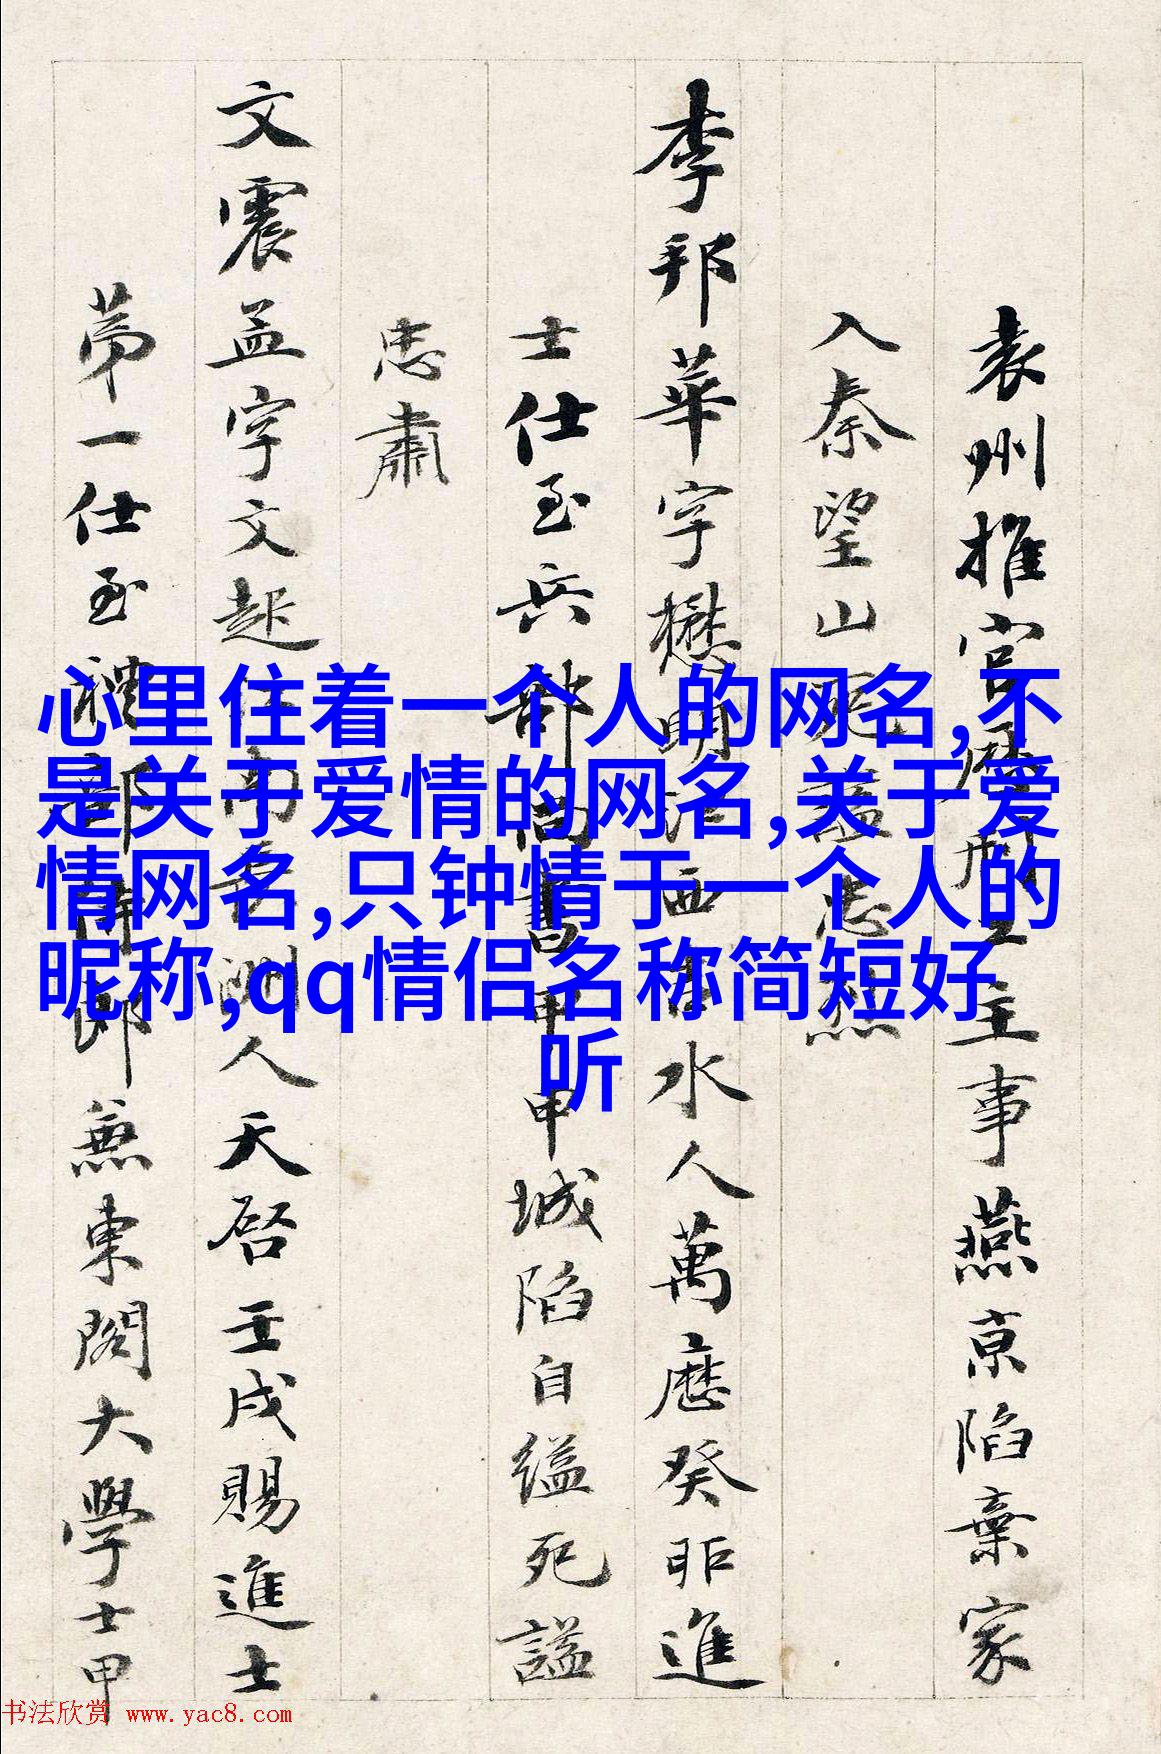 袁州推官歷刑工主事燕京陷棄家
入秦望山忠烈
李邦華字懋明江西吉水人萬曆癸卯進
士仕至兵部尚書甲申城陷自縊死謚
忠肅
文震孟字文起南人天啓壬戌賜進士
第一仕至禮部侍郎兼東閣大學士甲
心里住着一个人的网名,不
是关于爱情的网名,关于爱
情网名,只钟情于一个人的
昵称,qq情侣名称简短好
听
书法欣赏 www.yac8.com